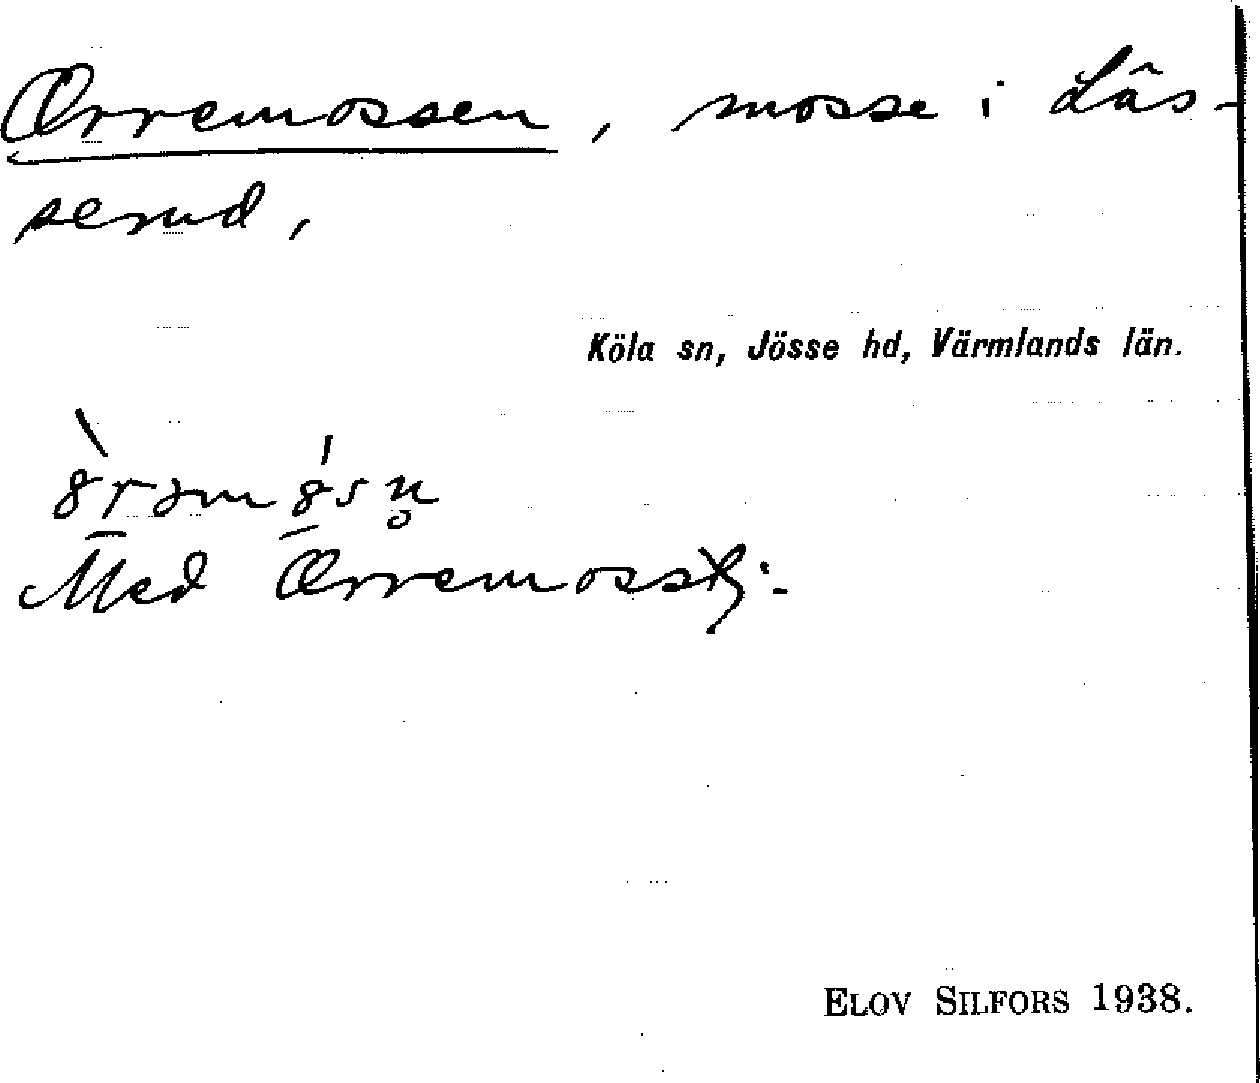 Orremossen, mosse i Lås-
serud,
Köla sn, Jösse hd, Värmlands län.
Med
ELOV SILFORS 1938.